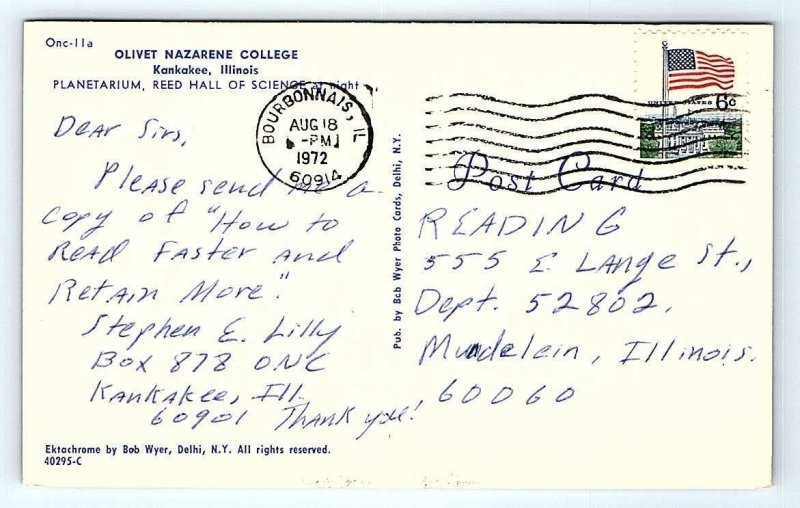 Onc-11a
OLIVET NAZARENE COLLEGE
Kankakee, Illinois
PLANETARIUM, REED HALL OF SCIENCE at night
BOURBONNAIS, IL
AUG 18
-PM
1972
60914
UNITED STATES 6c
Dear Sirs,
Please send me a
copy of "How to
Read Faster and
Retain More".
Stephen E. Lilly
Box 878 ONC
Kankakee, Ill.
60901 Thank you!
Pub. by Bob Wyer Photo Cards, Delhi, N.Y.
Post Card
READING
555 E. Lange St.,
Dept. 52802,
Mundelein, Illinois.
60060
Ektachrome by Bob Wyer, Delhi, N.Y. All rights reserved.
40295-C